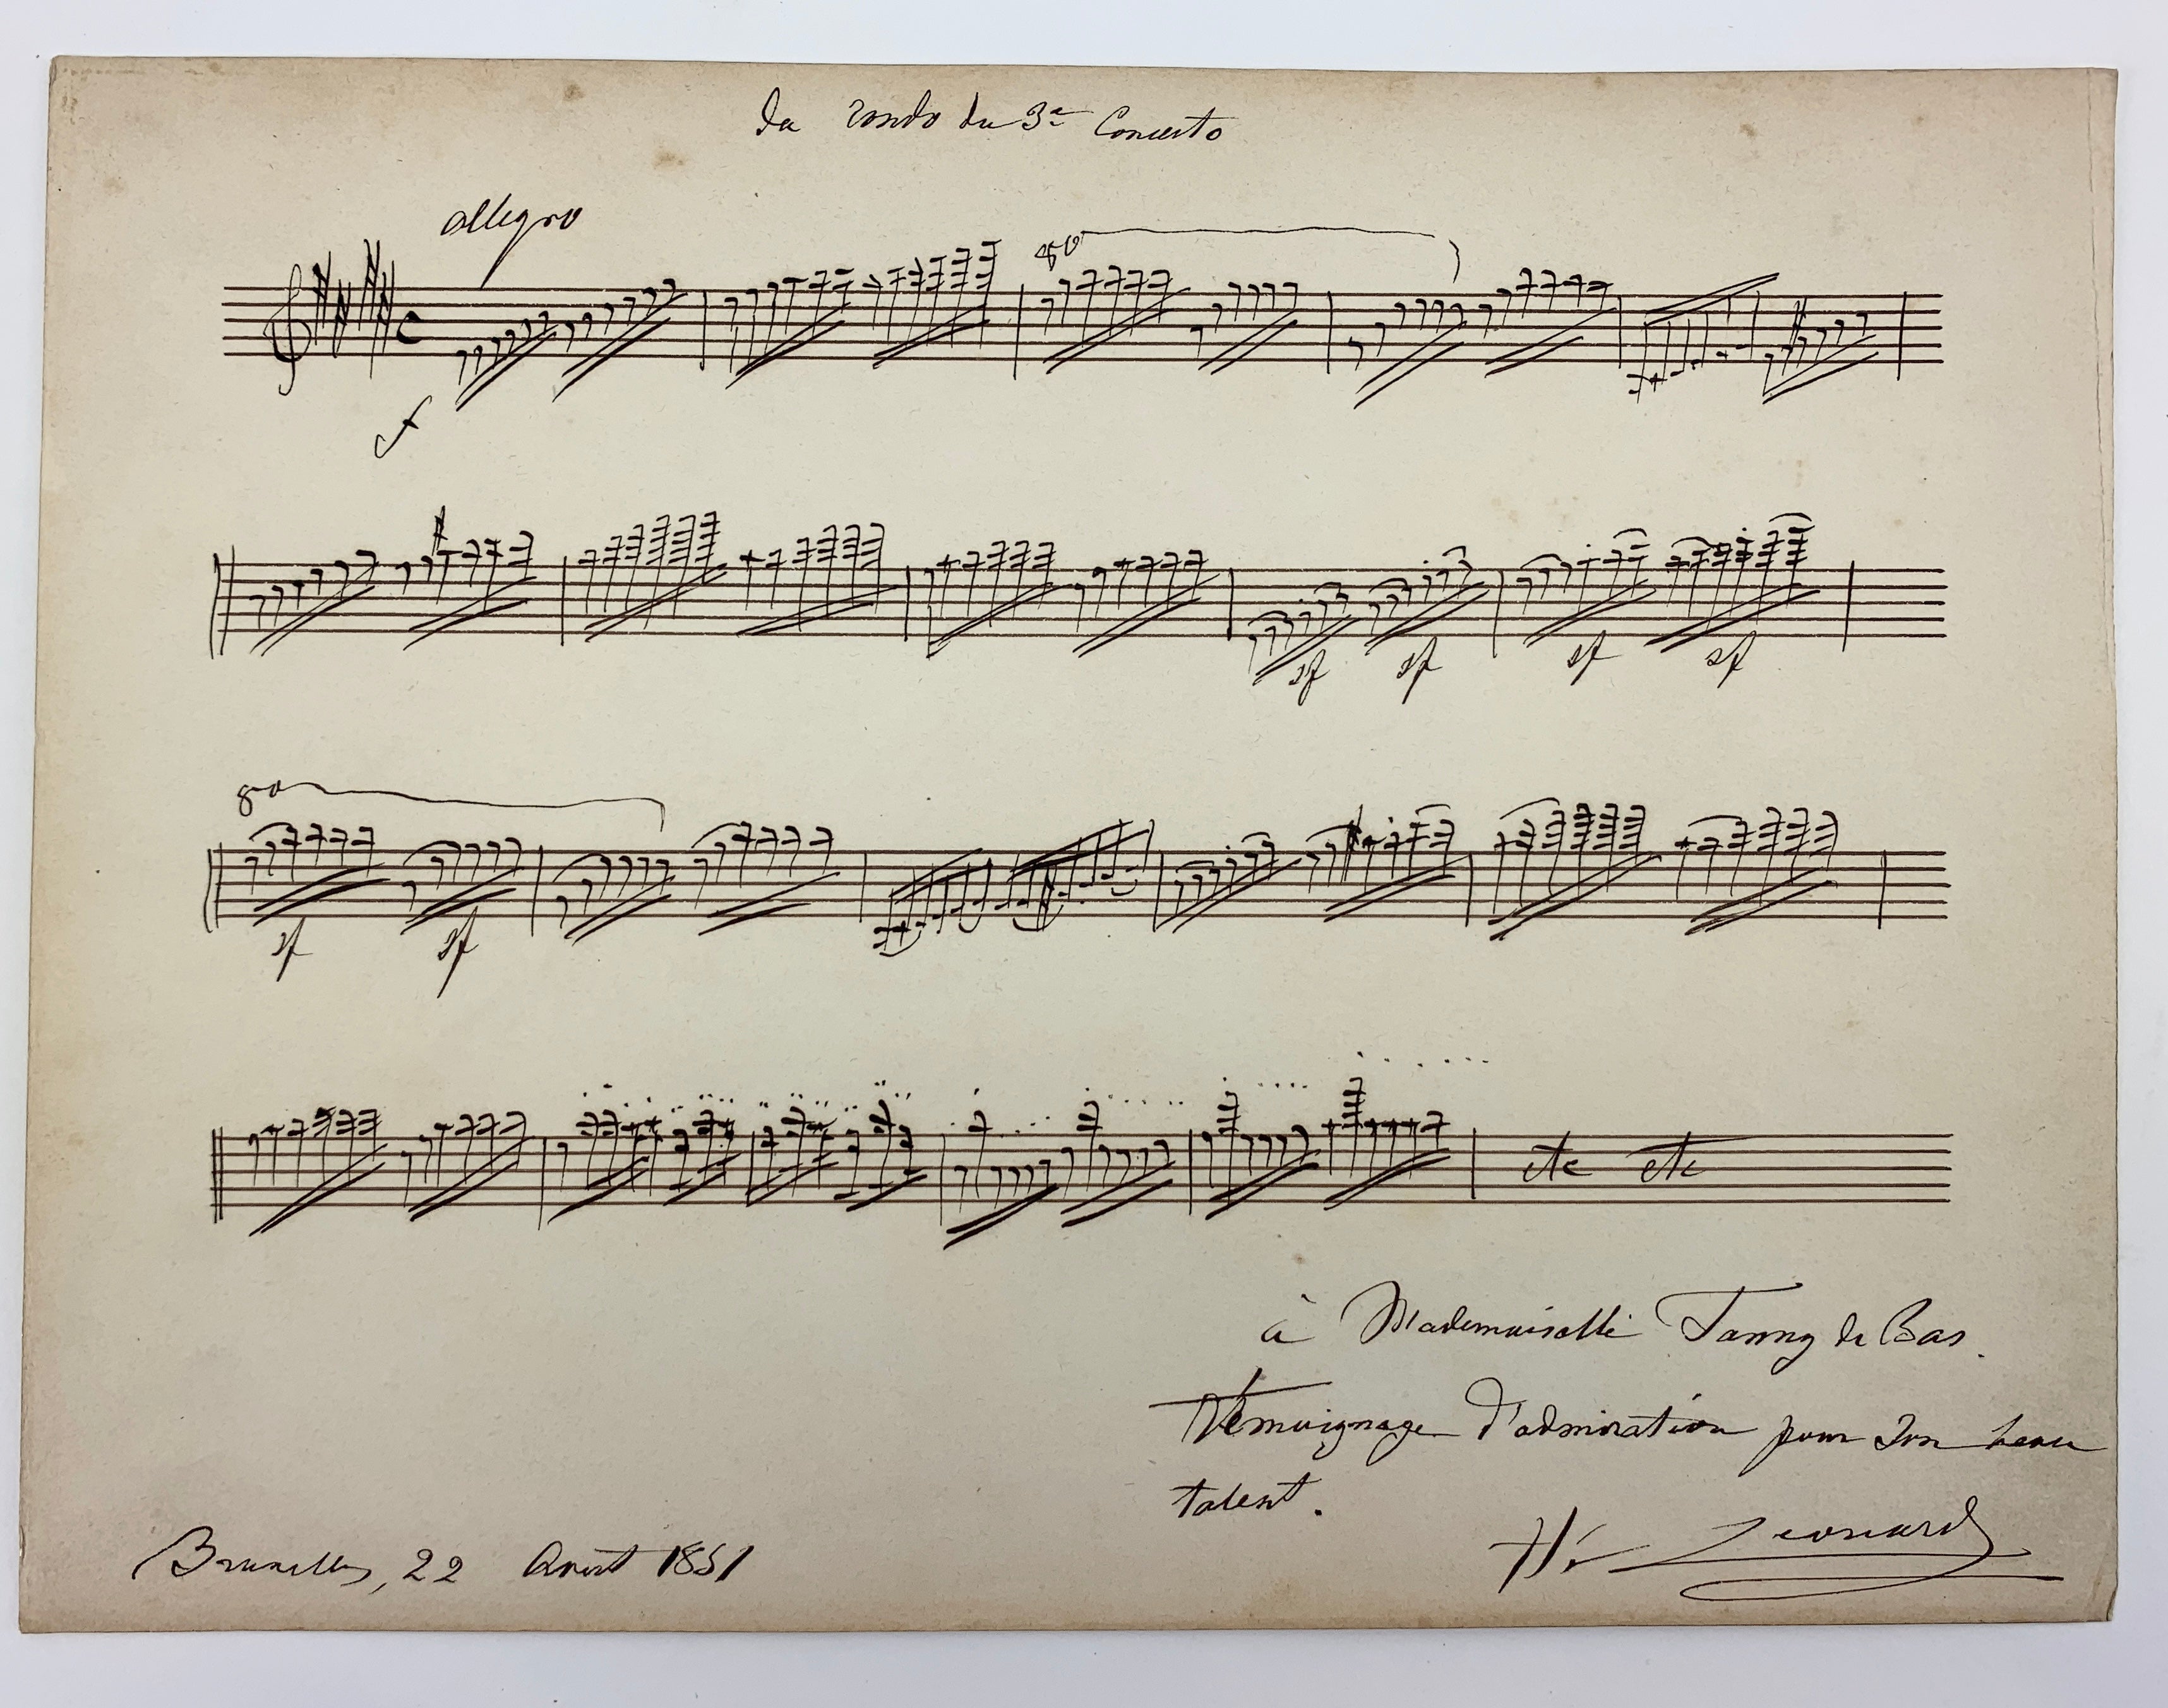 du rondo du 3e Concerto
allegro
8va
f
sf sf sf sf
8va
sf sf
etc etc
à Mademoiselle Fanny de Bas.
Témoignage d'admiration pour son beau
talent.
Hri Leonard
Bruxelles, 22 Août 1851